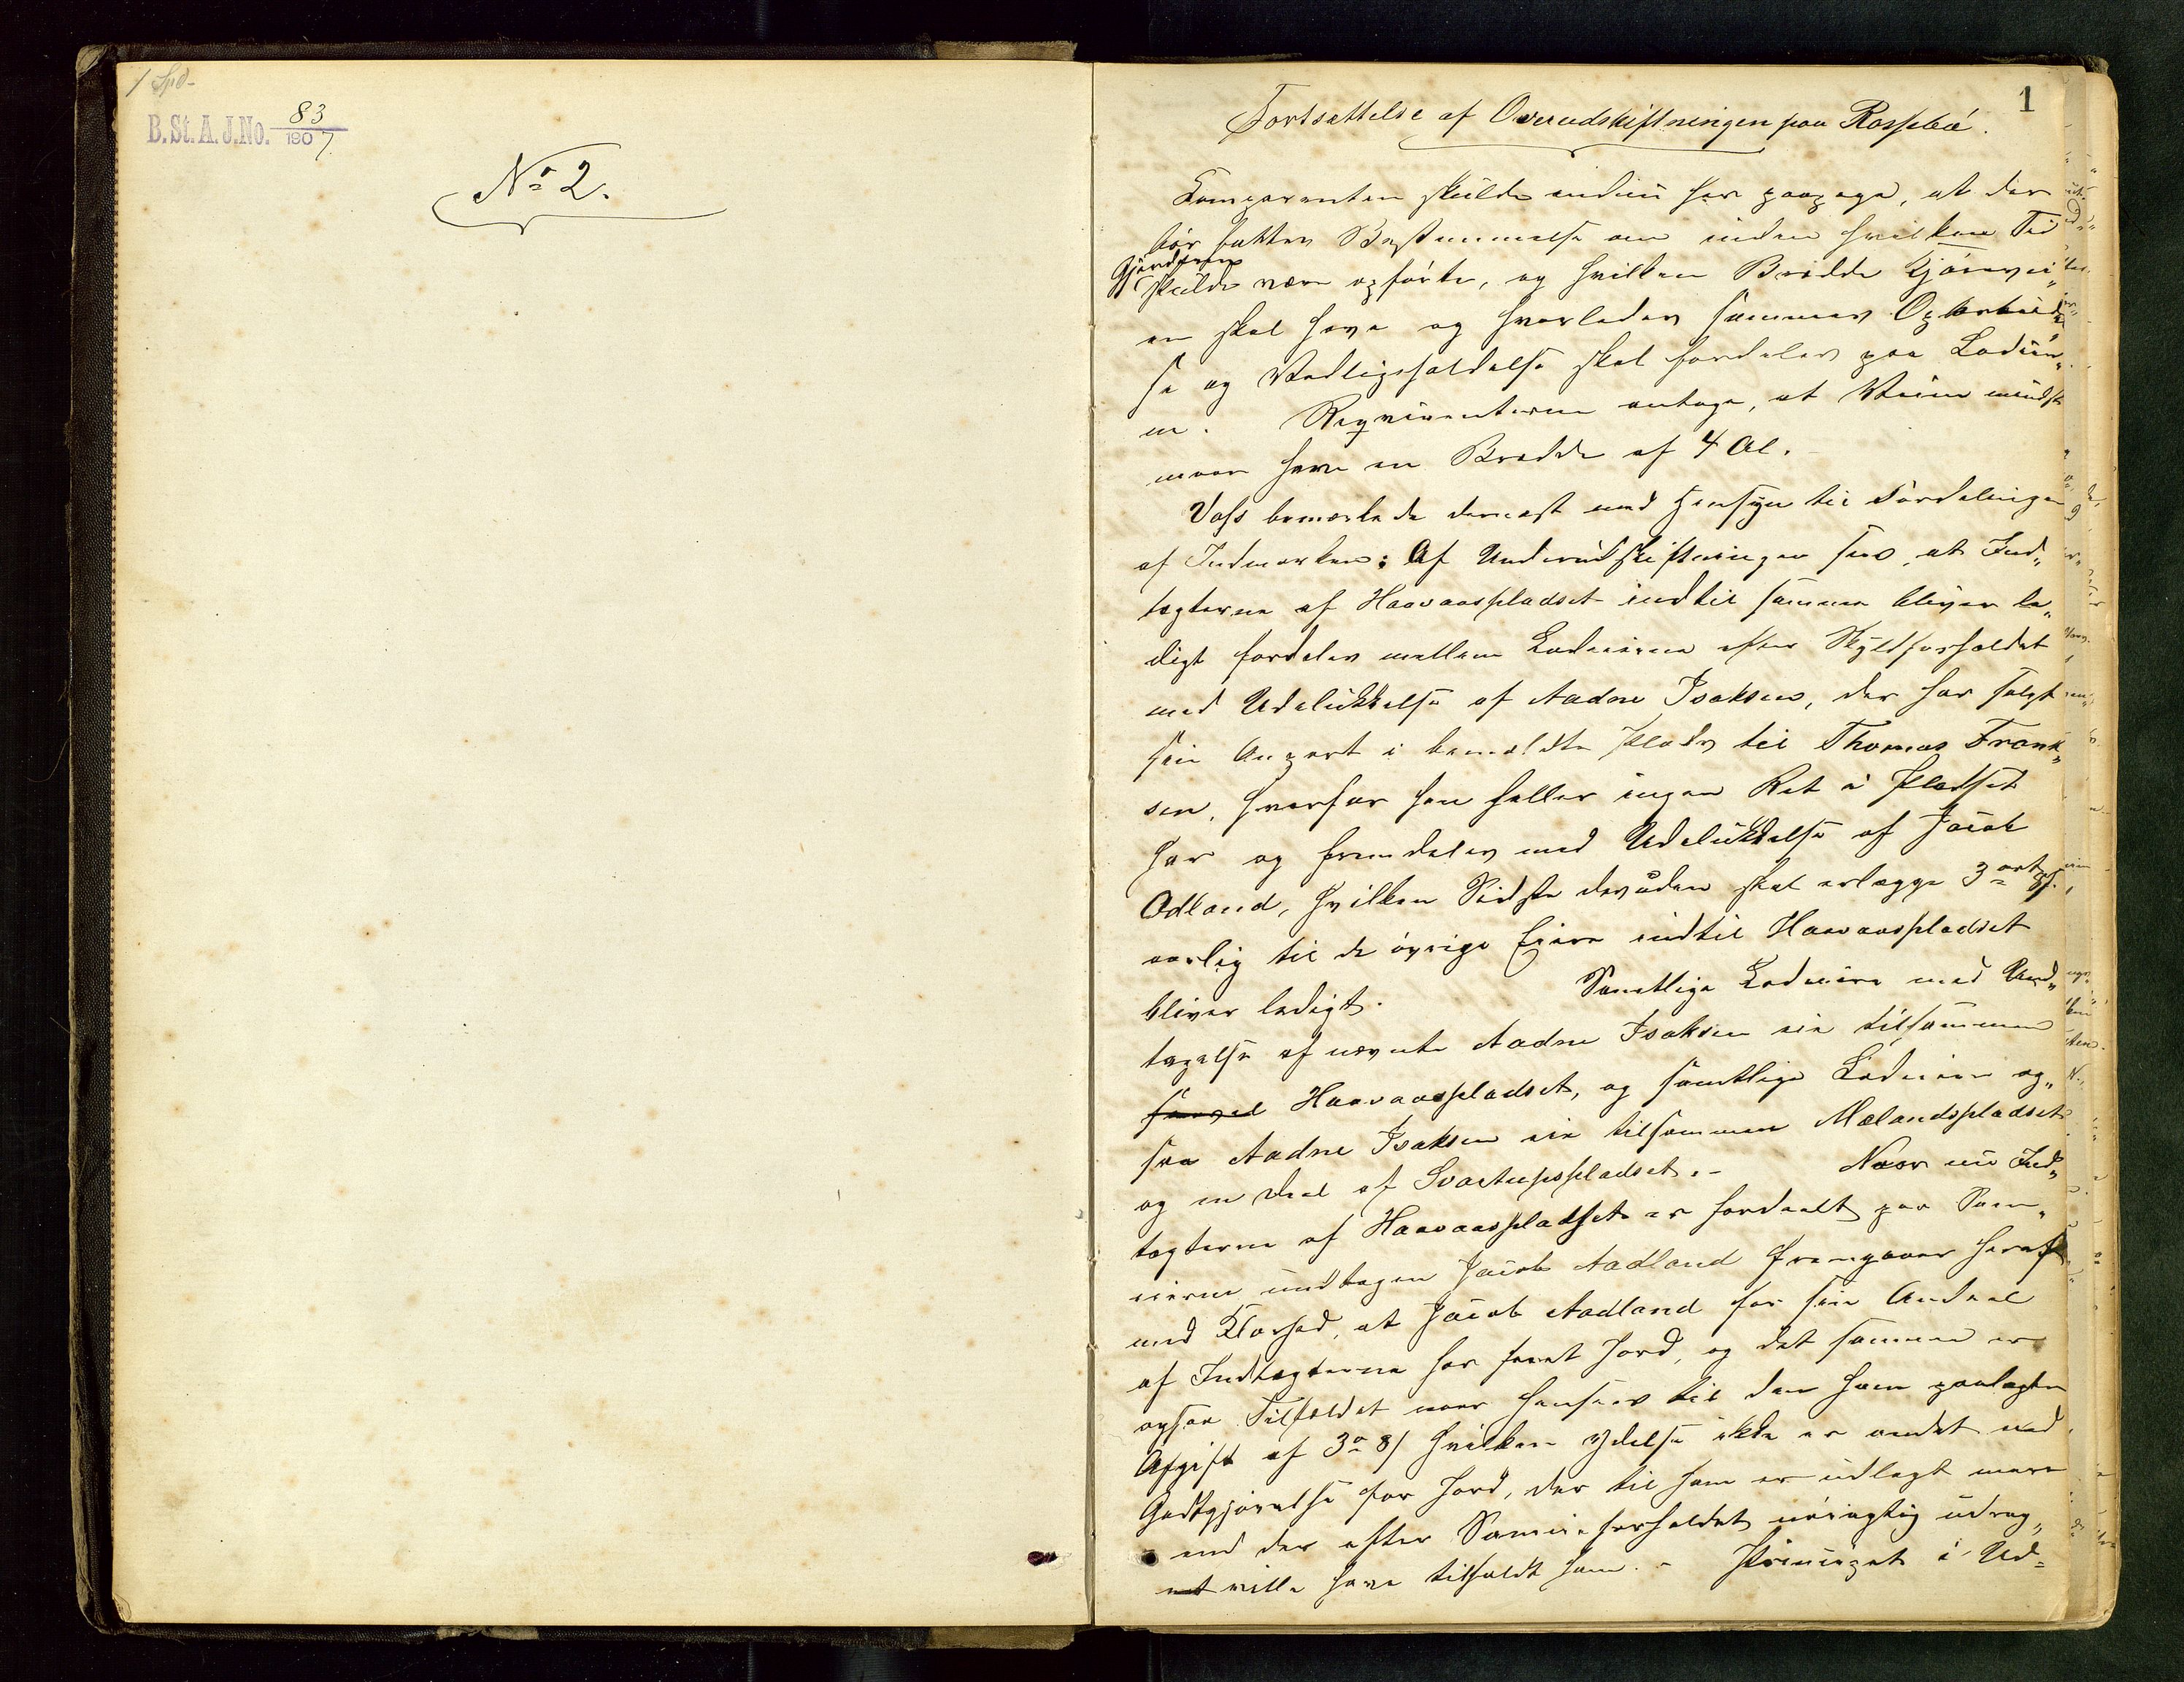 1 Spd-
B.St.A.J.No. 83
1907
No 2.
1
Fortsættelse af Overudskiftningen paa Rossebø.
Komparenten skulde endnu her paapege, at der
bør fattes Bestemmelse om inden hvilken Tid
Gjærderne
skulde være opførte, og hvilken Bredde Kjørevei„
en skal have og hvorledes sammes Oparbeidel„
se og Vedligeholdelse skal fordeles paa Lodeier„
ne. Reqvirenterne antage, at Veien mindst
maa have en Bredde af 4 Al.
Voss bemærkede dernæst med Hensyn til Fordelingen
af Indmarken: Af Underudskiftningen sees, at Ind„
tægterne af Haavaaspladset indtil samme bliver le„
digt fordeles mellem Lodeierne efter Skyldforholdet
med Udelukkelse af Aadne Isaksen, der har solgt
sin Anpart i bemeldte Plads til Thomas Frank„
sen, hvorfor han heller ingen Ret i Pladset
har og fremdeles med Udelukkelse af Jacob
Odland, hvilken Sidste desuden skal erlægge 3 ort 8 s.
aarlig til de øvrige Eiere indtil Haavaaspladset
bliver ledigt. Samtlige Lodeiere med Und„
tagelse af nævnte Aadne Isaksen eie tilsammen
Haavaaspladset, og samtlige Lodeiere og„
saa Aadne Isaksen eie tilsammen Mælandspladset
og en Deel af Svartupspladset.- Naar nu Ind„
tægterne af Haavaaspladset er fordeelt paa Sam„
eierne undtagen Jacob Aadland fremgaaer heraf
med Klarhed, at Jacob Aadland for sin Andeel
af Indtægterne har faaet Jord, og det samme er
ogsaa Tilfældet naar henses til den ham paalagte
Afgift af 3 o 8 s hvilken Ydelse ikke er andet end
Godtgjørelse for Jord, der til ham er udlagt mere
end der efter Sameieforholdet nøiagtig udreg„
net ville have tilfaldt ham. - Principet i Ud=